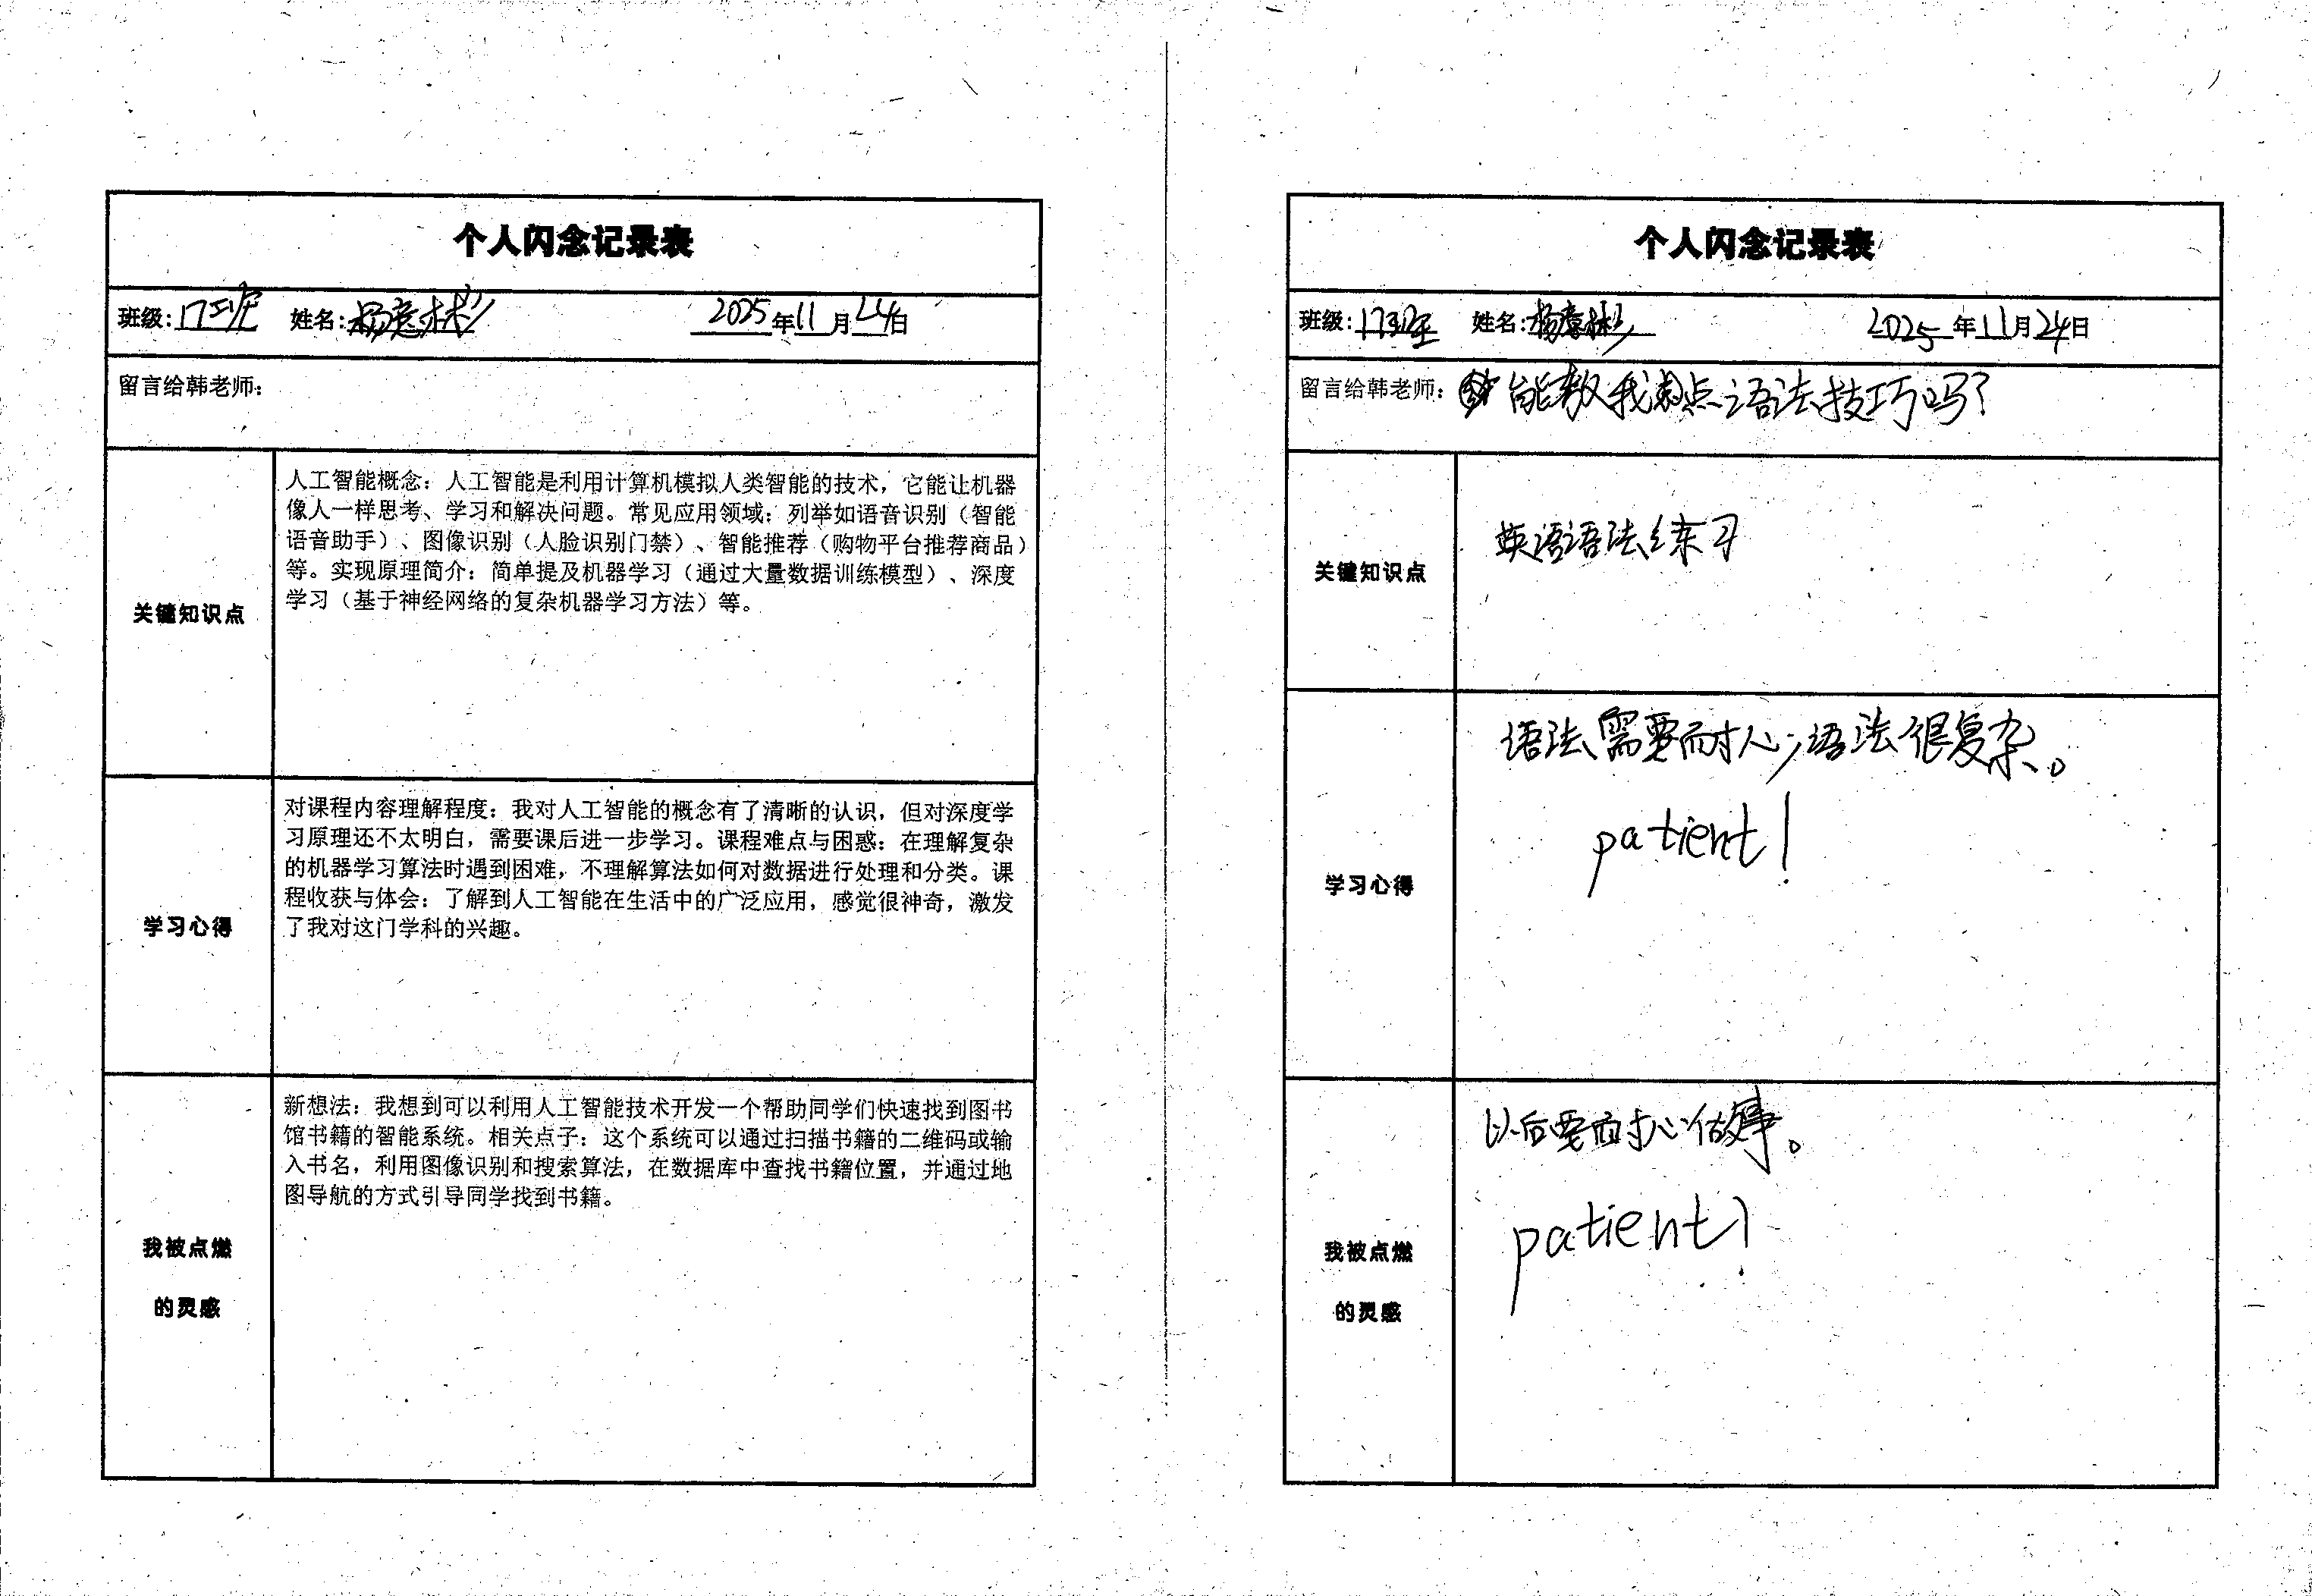 个人闪念记录表
班级:17班 姓名:杨意彬 2025年11月24日
留言给韩老师:
关键知识点
人工智能概念：人工智能是利用计算机模拟人类智能的技术，它能让机器
像人一样思考、学习和解决问题。常见应用领域：列举如语音识别（智能
语音助手）、图像识别（人脸识别门禁）、智能推荐（购物平台推荐商品）
等。实现原理简介：简单提及机器学习（通过大量数据训练模型）、深度
学习（基于神经网络的复杂机器学习方法）等。
学习心得
对课程内容理解程度：我对人工智能的概念有了清晰的认识，但对深度学
习原理还不太明白，需要课后进一步学习。课程难点与困惑：在理解复杂
的机器学习算法时遇到困难，不理解算法如何对数据进行处理和分类。课
程收获与体会：了解到人工智能在生活中的广泛应用，感觉很神奇，激发
了我对这门学科的兴趣。
我被点燃
的灵感
新想法：我想到可以利用人工智能技术开发一个帮助同学们快速找到图书
馆书籍的智能系统。相关点子：这个系统可以通过扫描书籍的二维码或输
入书名，利用图像识别和搜索算法，在数据库中查找书籍位置，并通过地
图导航的方式引导同学找到书籍。
个人闪念记录表
班级:173班 姓名:杨意彬 2025年11月24日
留言给韩老师: 能教我点语法技巧吗?
关键知识点
英语语法练习
学习心得
语法需要耐心,语法很复杂。
patient!
我被点燃
的灵感
以后要耐心做事。
patient!